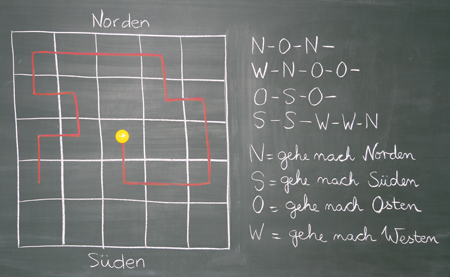 Norden
N-O-N-
W-N-O-O-
O-S-O-
S-S-W-W-N
N=gehe nach Norden
S=gehe nach Süden
O=gehe nach Osten
W=gehe nach Westen
Süden